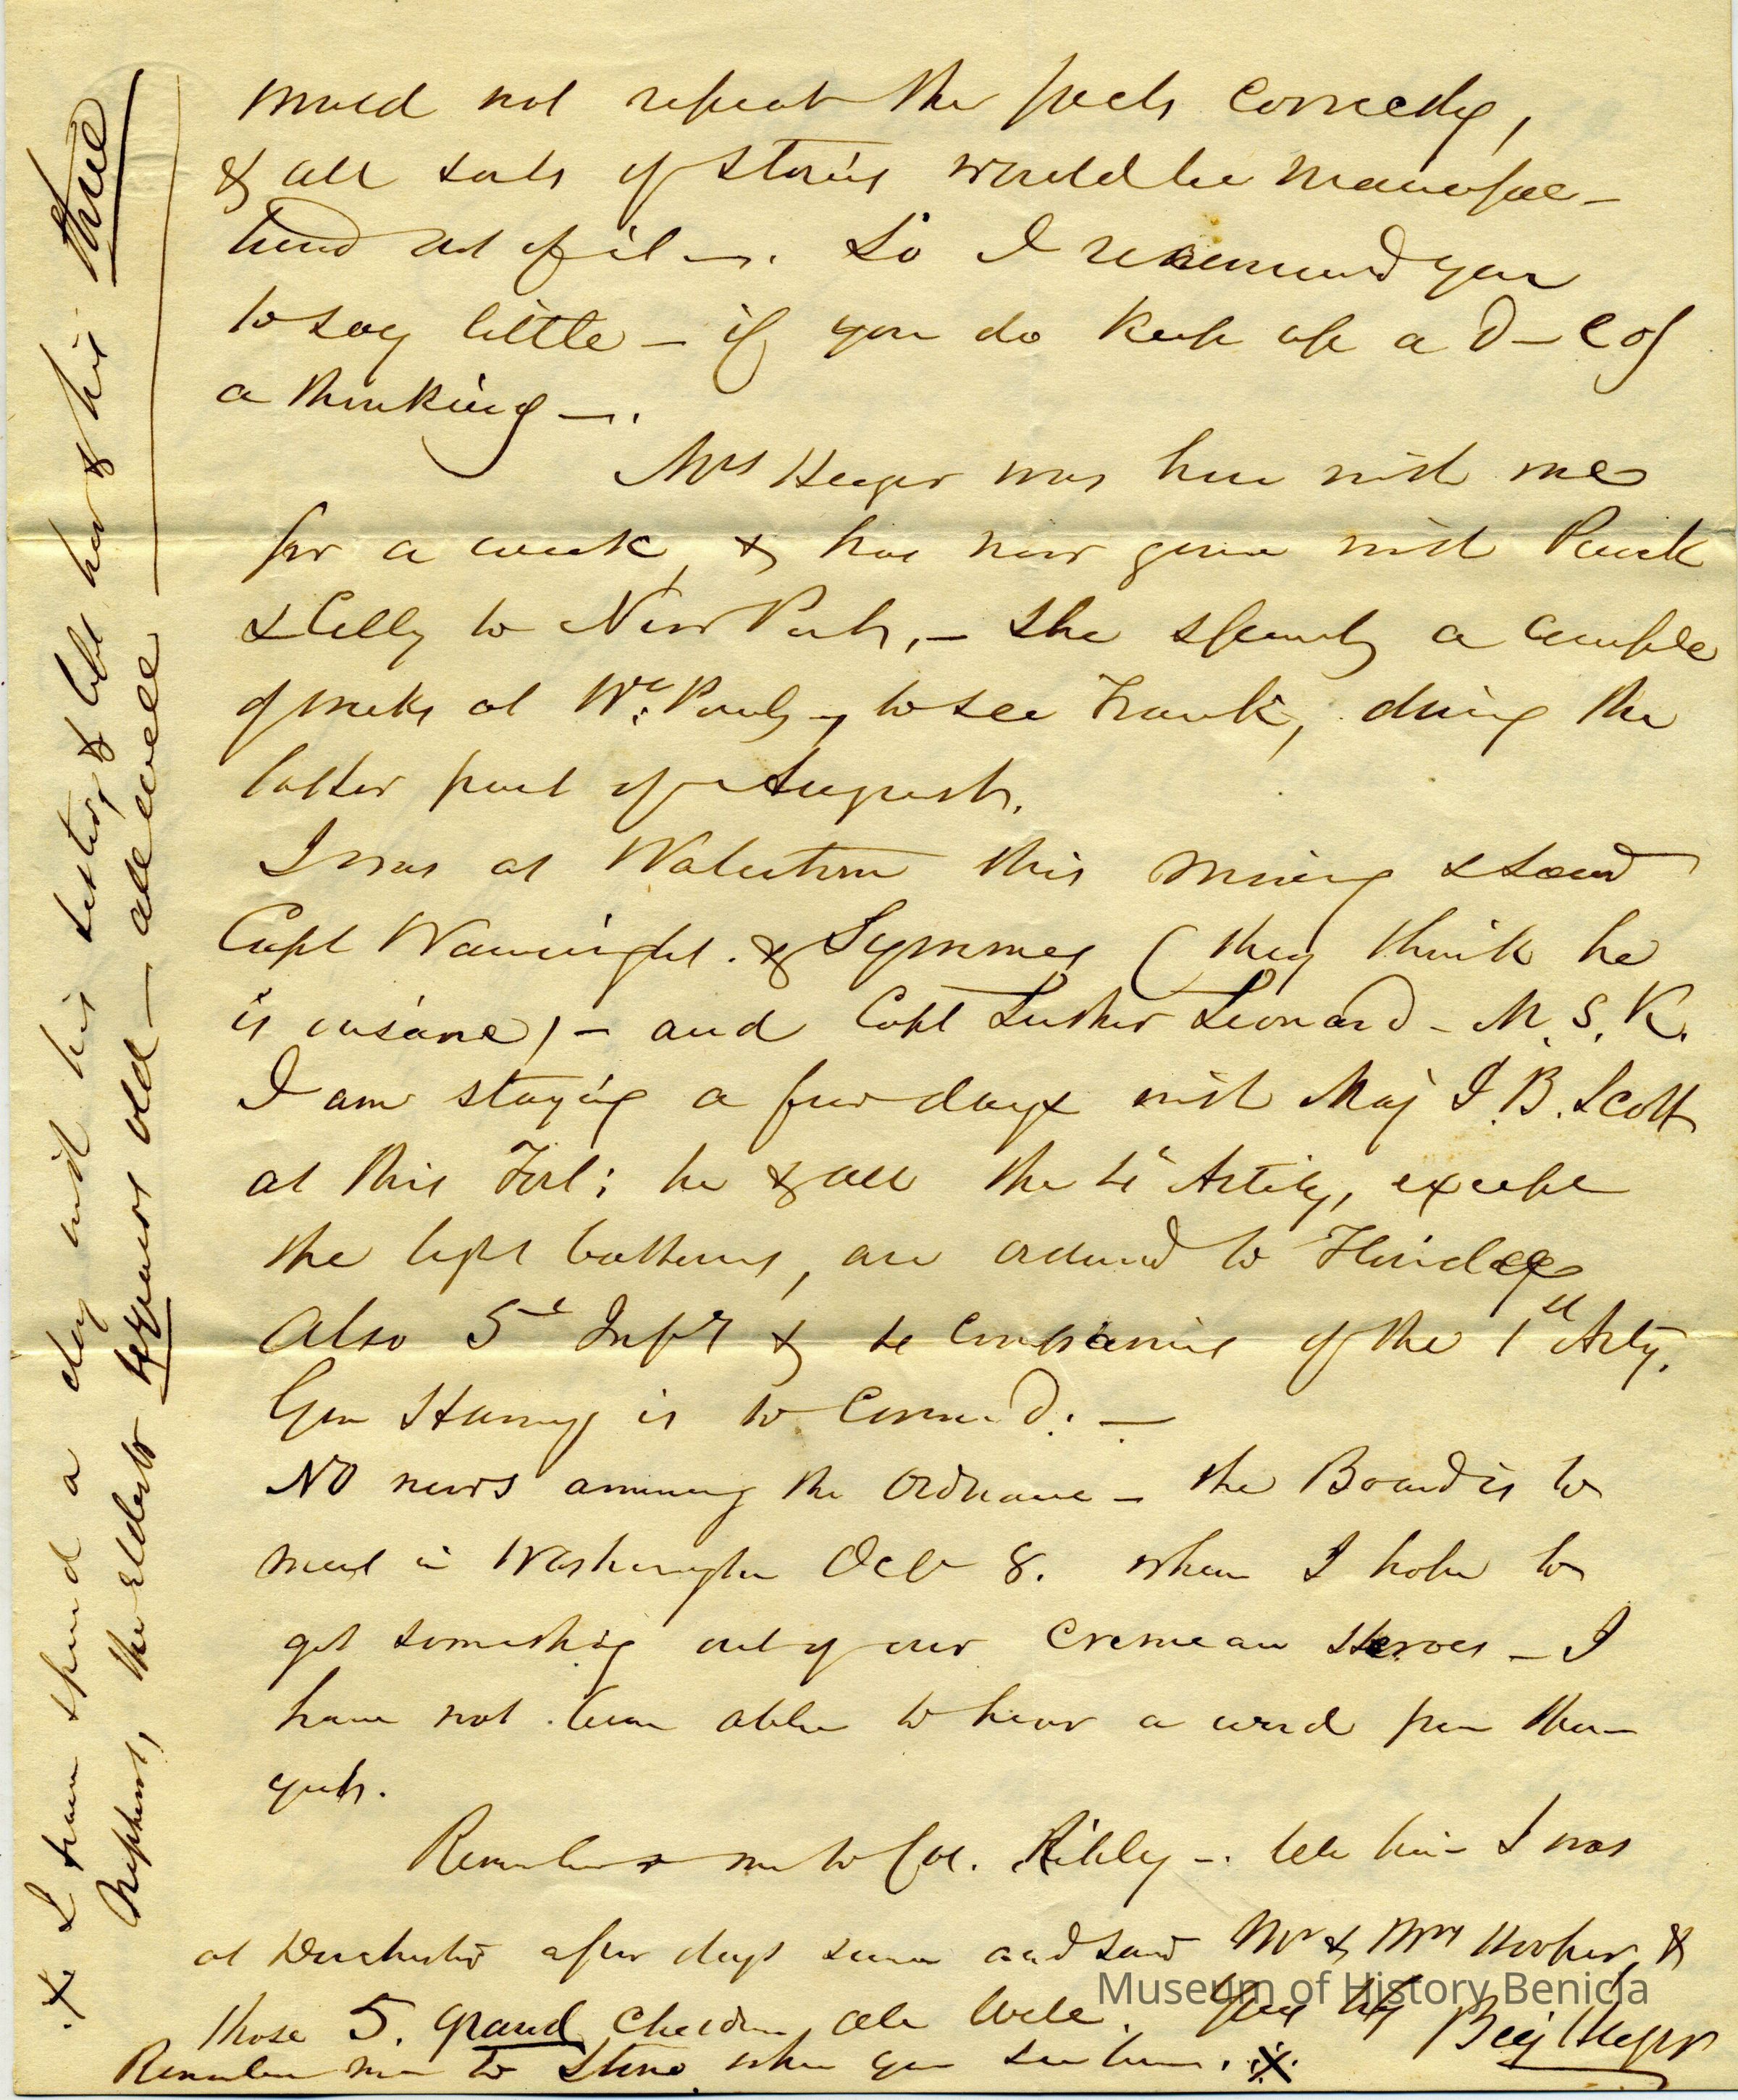 would not repeat the facts correctly,
& all sorts of stories would be manufac-
tured out of it —. So I recommend you
to say little — if you do keep up a D—l of
a thinking —.
Mrs Huger was here with me
for a week, & has now gone with
& Celly to New Port, — She spends a couple
of weeks at Wt. Point, to see Frank, during the
latter part of August.
I was at Watertown this morning & saw
Capt Wainwright. & Symmes (they think he
is insane) — and Capt Luther Leonard — M.S.K.
I am staying a few days with Maj J.B. Scott
at this Fort; he & all the 4t Artily, except
the light batteries, are ordered to Florida
Also 5t Infy & companies of the 1st Arty.
Gen Harney is to Commd: —
No news among the Ordnance — the Board is to
meet in Washington Oct 8. when I hope to
get something out of our Cremean Heroes — I
have not been able to hear a word from them
yet.
Remember me to Col. Ripley —. tell him I was
at Dorchester a few days since and saw Mr & Mrs Hooker, &
those 5. grand children all well. Yrs try
Benj Huger
Remember me to Stone when you see him. X
X I have spend a day with his sister, & left her & his three
Nephews, the eldest 4 years old — all well
Museum of History Benicia